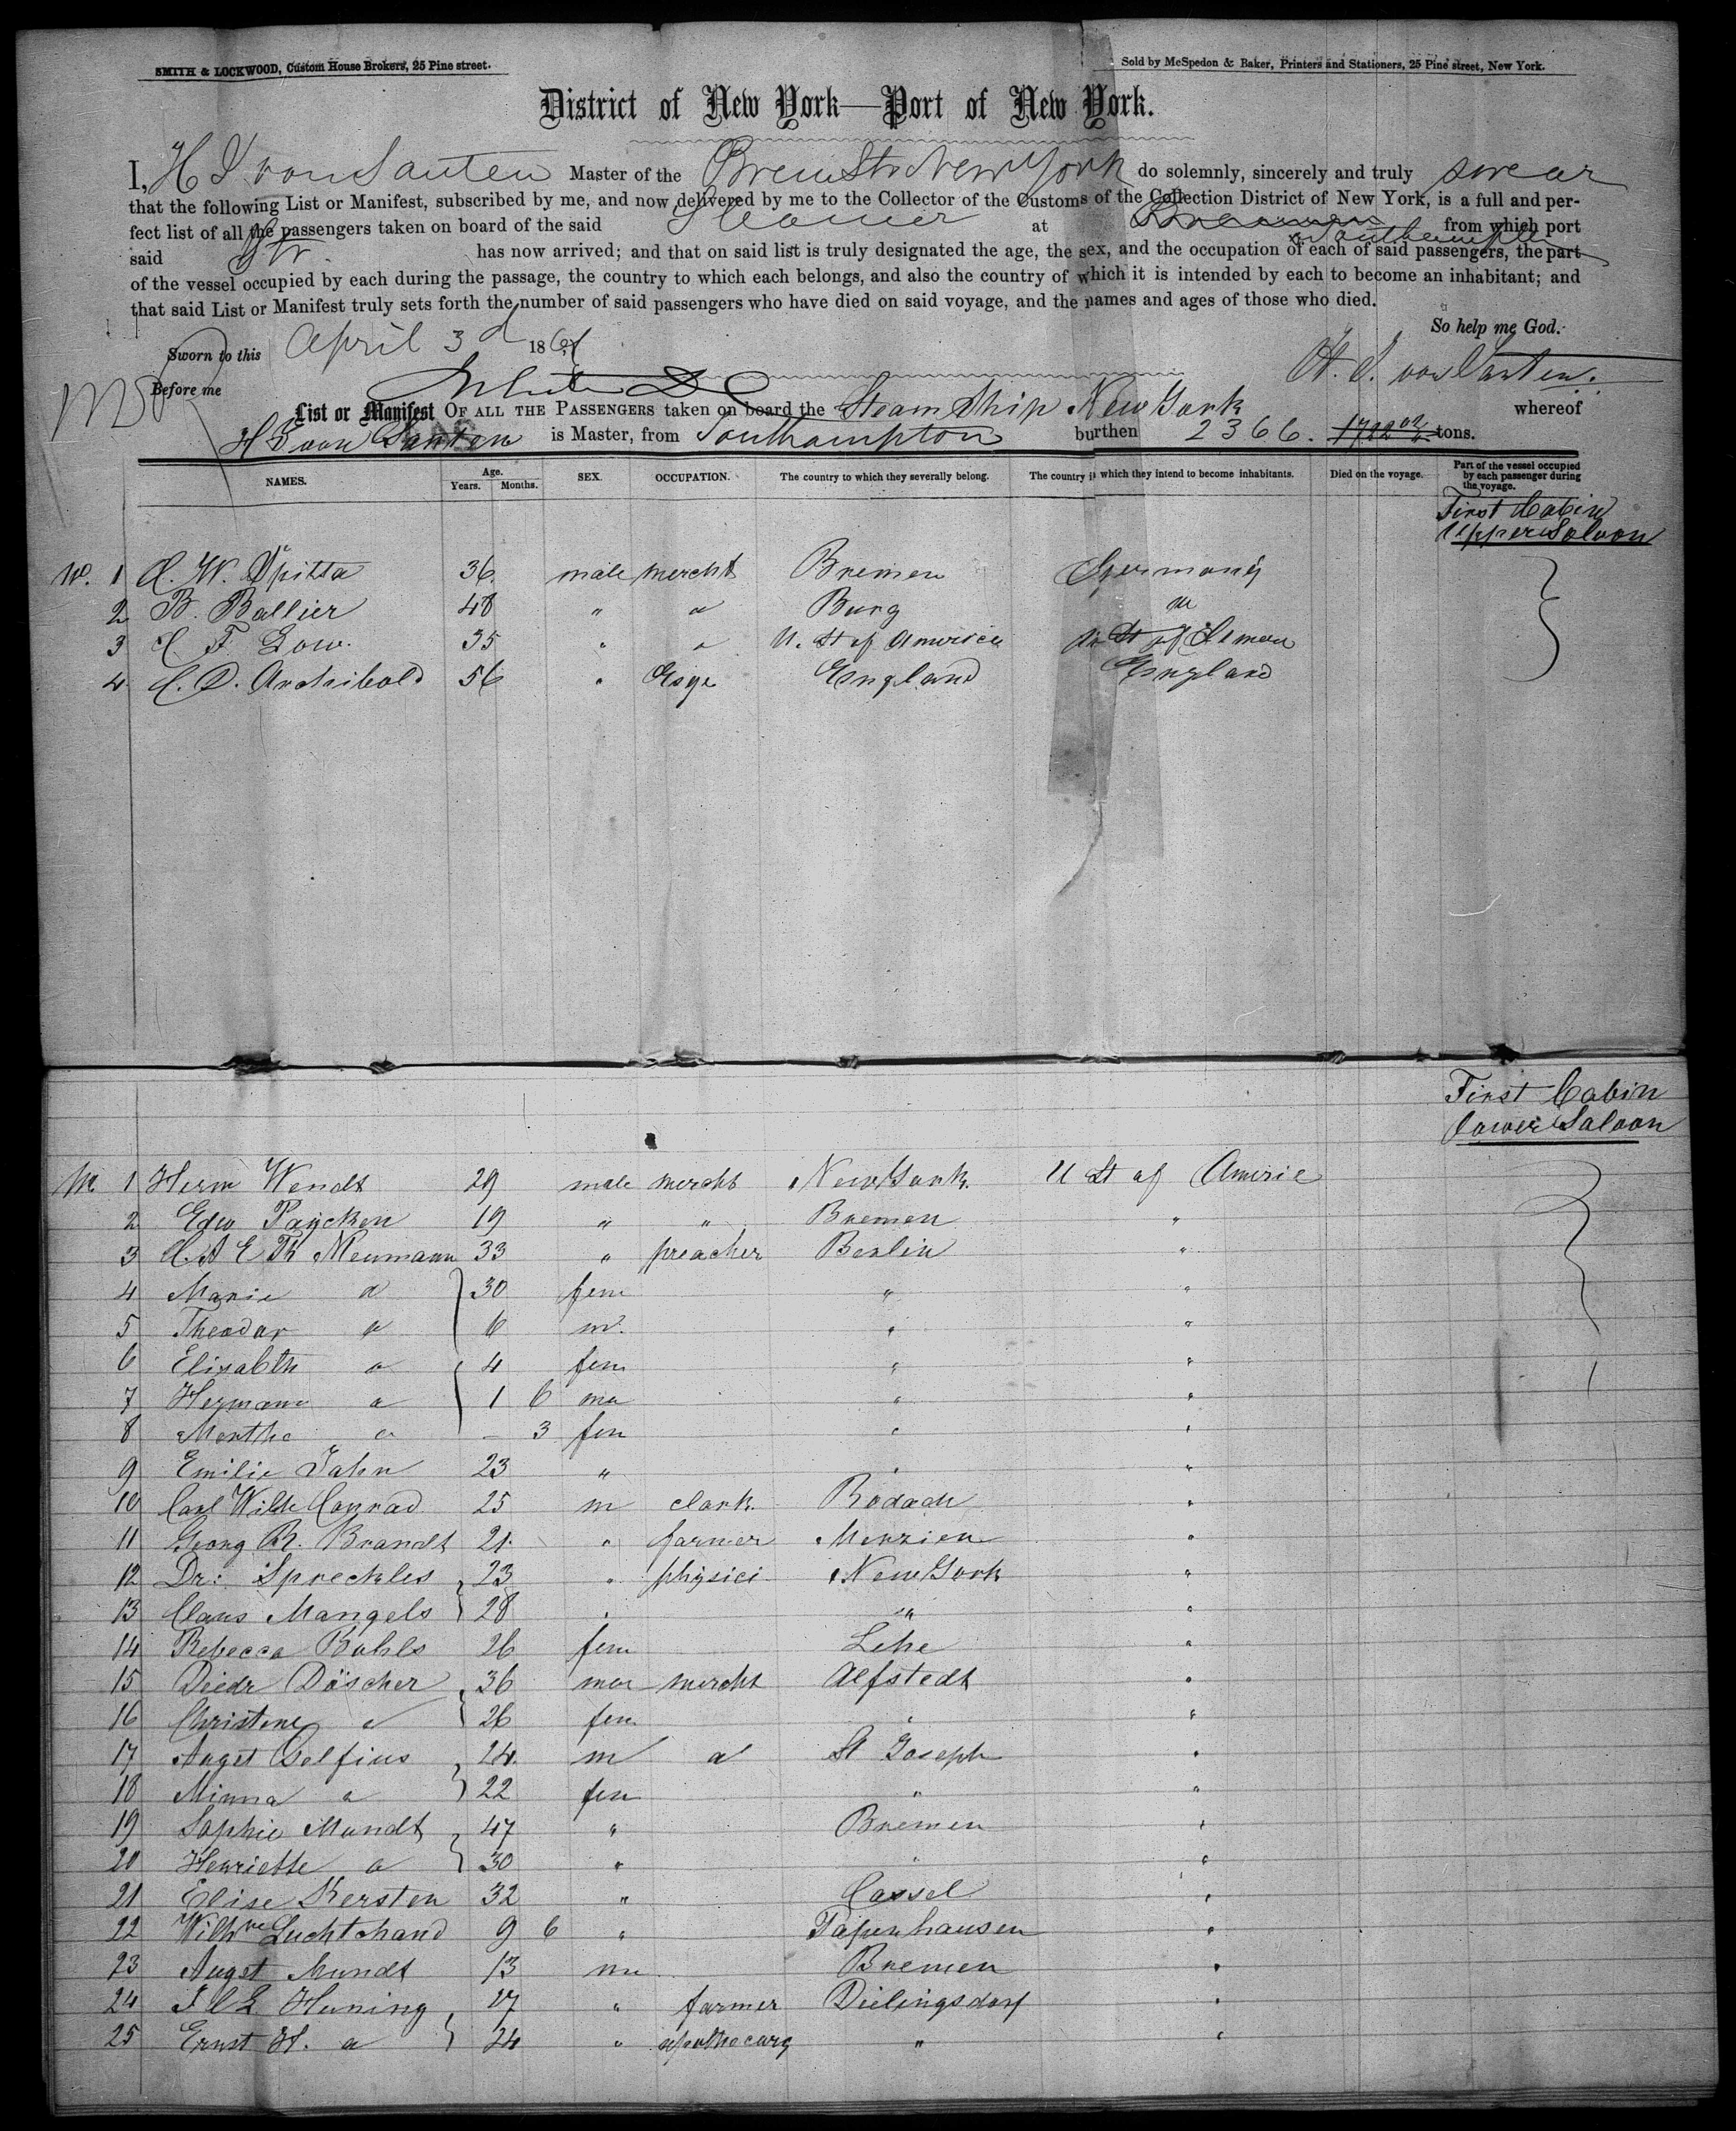 SMITH & LOCKWOOD, Custom House Brokers, 25 Pine street.
Sold by McSpedon & Baker, Printers and Stationers, 25 Pine street, New York.
District of New York—Port of New York.
I, H J von Santen Master of the Brem Str New York do solemnly, sincerely and truly swear
that the following List or Manifest, subscribed by me, and now delivered by me to the Collector of the Customs of the Collection District of New York, is a full and per-
fect list of all the passengers taken on board of the said Steamer at Bremen Southampton from which port
said Str. has now arrived; and that on said list is truly designated the age, the sex, and the occupation of each of said passengers, the part
of the vessel occupied by each during the passage, the country to which each belongs, and also the country of which it is intended by each to become an inhabitant; and
that said List or Manifest truly sets forth the number of said passengers who have died on said voyage, and the names and ages of those who died.
So help me God.
Sworn to this April 3d 186
H. J. von Santen.
Before me
List or Manifest OF ALL THE PASSENGERS taken on board the Steam Ship New York whereof
H J von Santen is Master, from Southampton burthen 2366. tons.
NAMES. Age. Years. Months. SEX. OCCUPATION. The country to which they severally belong. The country in which they intend to become inhabitants. Died on the voyage. Part of the vessel occupied by each passenger during the voyage.
First Cabin
Upper Saloon
1 W. Spitta 36 male mercht Bremen Germany
2 B. Ballier 48 " " Burg "
3 F. Low. 35 " " U. St of America U St of
4 C. D. Archibold 56 " Esqr England England
First Cabin
Lower Saloon
1 Herm Wendt 29 male mercht New York U St of Americ
2 Edw Paÿcken 19 " " Bremen "
3 A E Th Neumann 33 " preacher Berlin "
4 Marie " 30 fem " "
5 Theodor " 6 m. " "
6 Elisabth " 4 fem " "
7 Hermann " 1 6 ma " "
8 Marthe " – 3 fem " "
9 Emilie Jahn 23 " " "
10 Carl Wilh Conrad 25 m clark Rodach "
11 Georg R. Brandt 21 " farmer "
12 Dr: Spreckles 23 " phisici New York "
13 Claus Mangels 28 " " "
14 Rebecca Bohls 26 fem Lehe "
15 Diedr Döscher 36 ma mercht Alfstedt "
16 Christine " 26 fem " "
17 Augst Delfius 24 m " St Joseph "
18 Minna " 22 fem " "
19 Sophie Mundt 47 " Bremen "
20 Henriette " 30 " " "
21 Elise Kersten 32 " Cassel "
22 Wilhne Luchtchand 9 6 " Papenhausen "
23 Augst Mundt 13 ma Bremen "
24 Huning 17 " farmer Dielingsdorf "
25 Ernst H. " 24 " apothecary " "